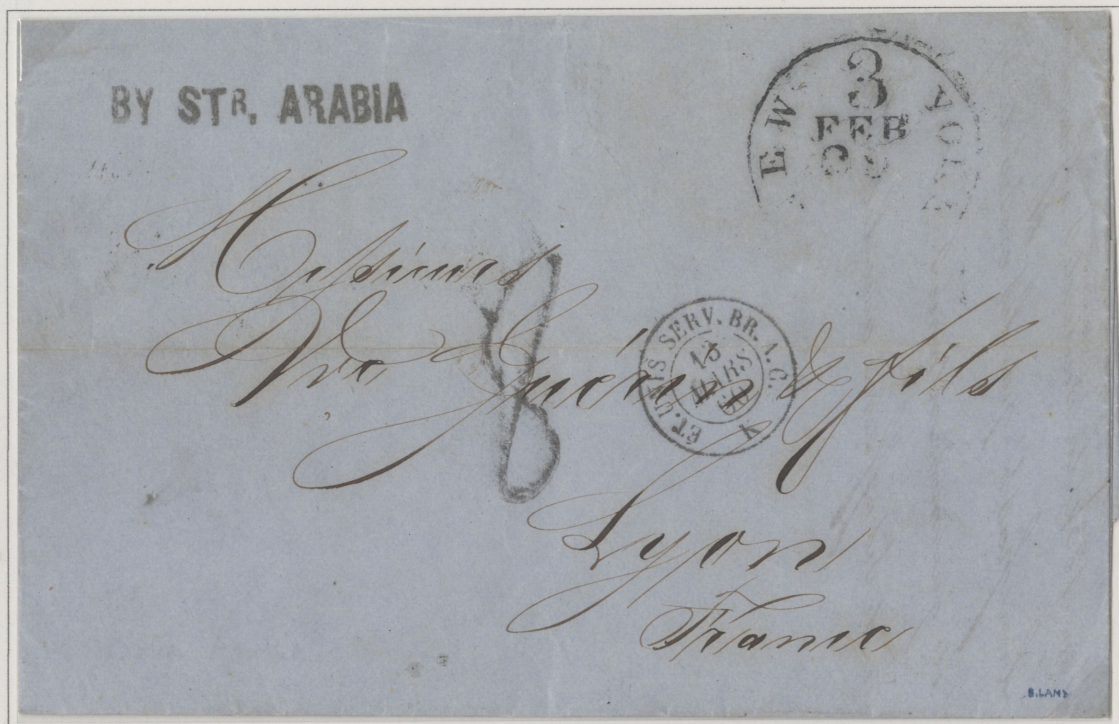 BY STR. ARABIA
NEW YORK
3
FEB
Messieurs
Vve Guérin & fils
8
ET. UNIS SERV. BR. A. C.
13
MARS
60
K
Lyon
France